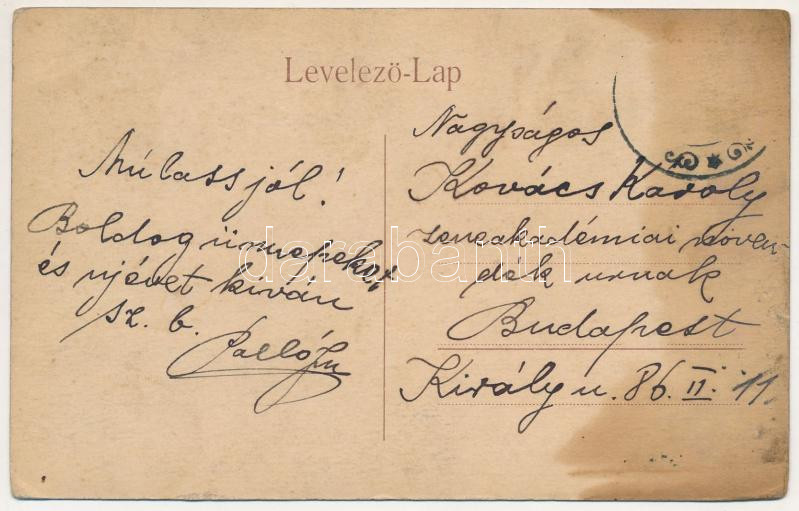 Levelezö-Lap
Múlass jól!
Boldog ünnepeket
és ujévet kiván
sz. b.
Nagyságos
Kovács Károly
zeneakadémiai növen-
dék urnak
Budapest
Király u. 86. II. 11.
darabanth